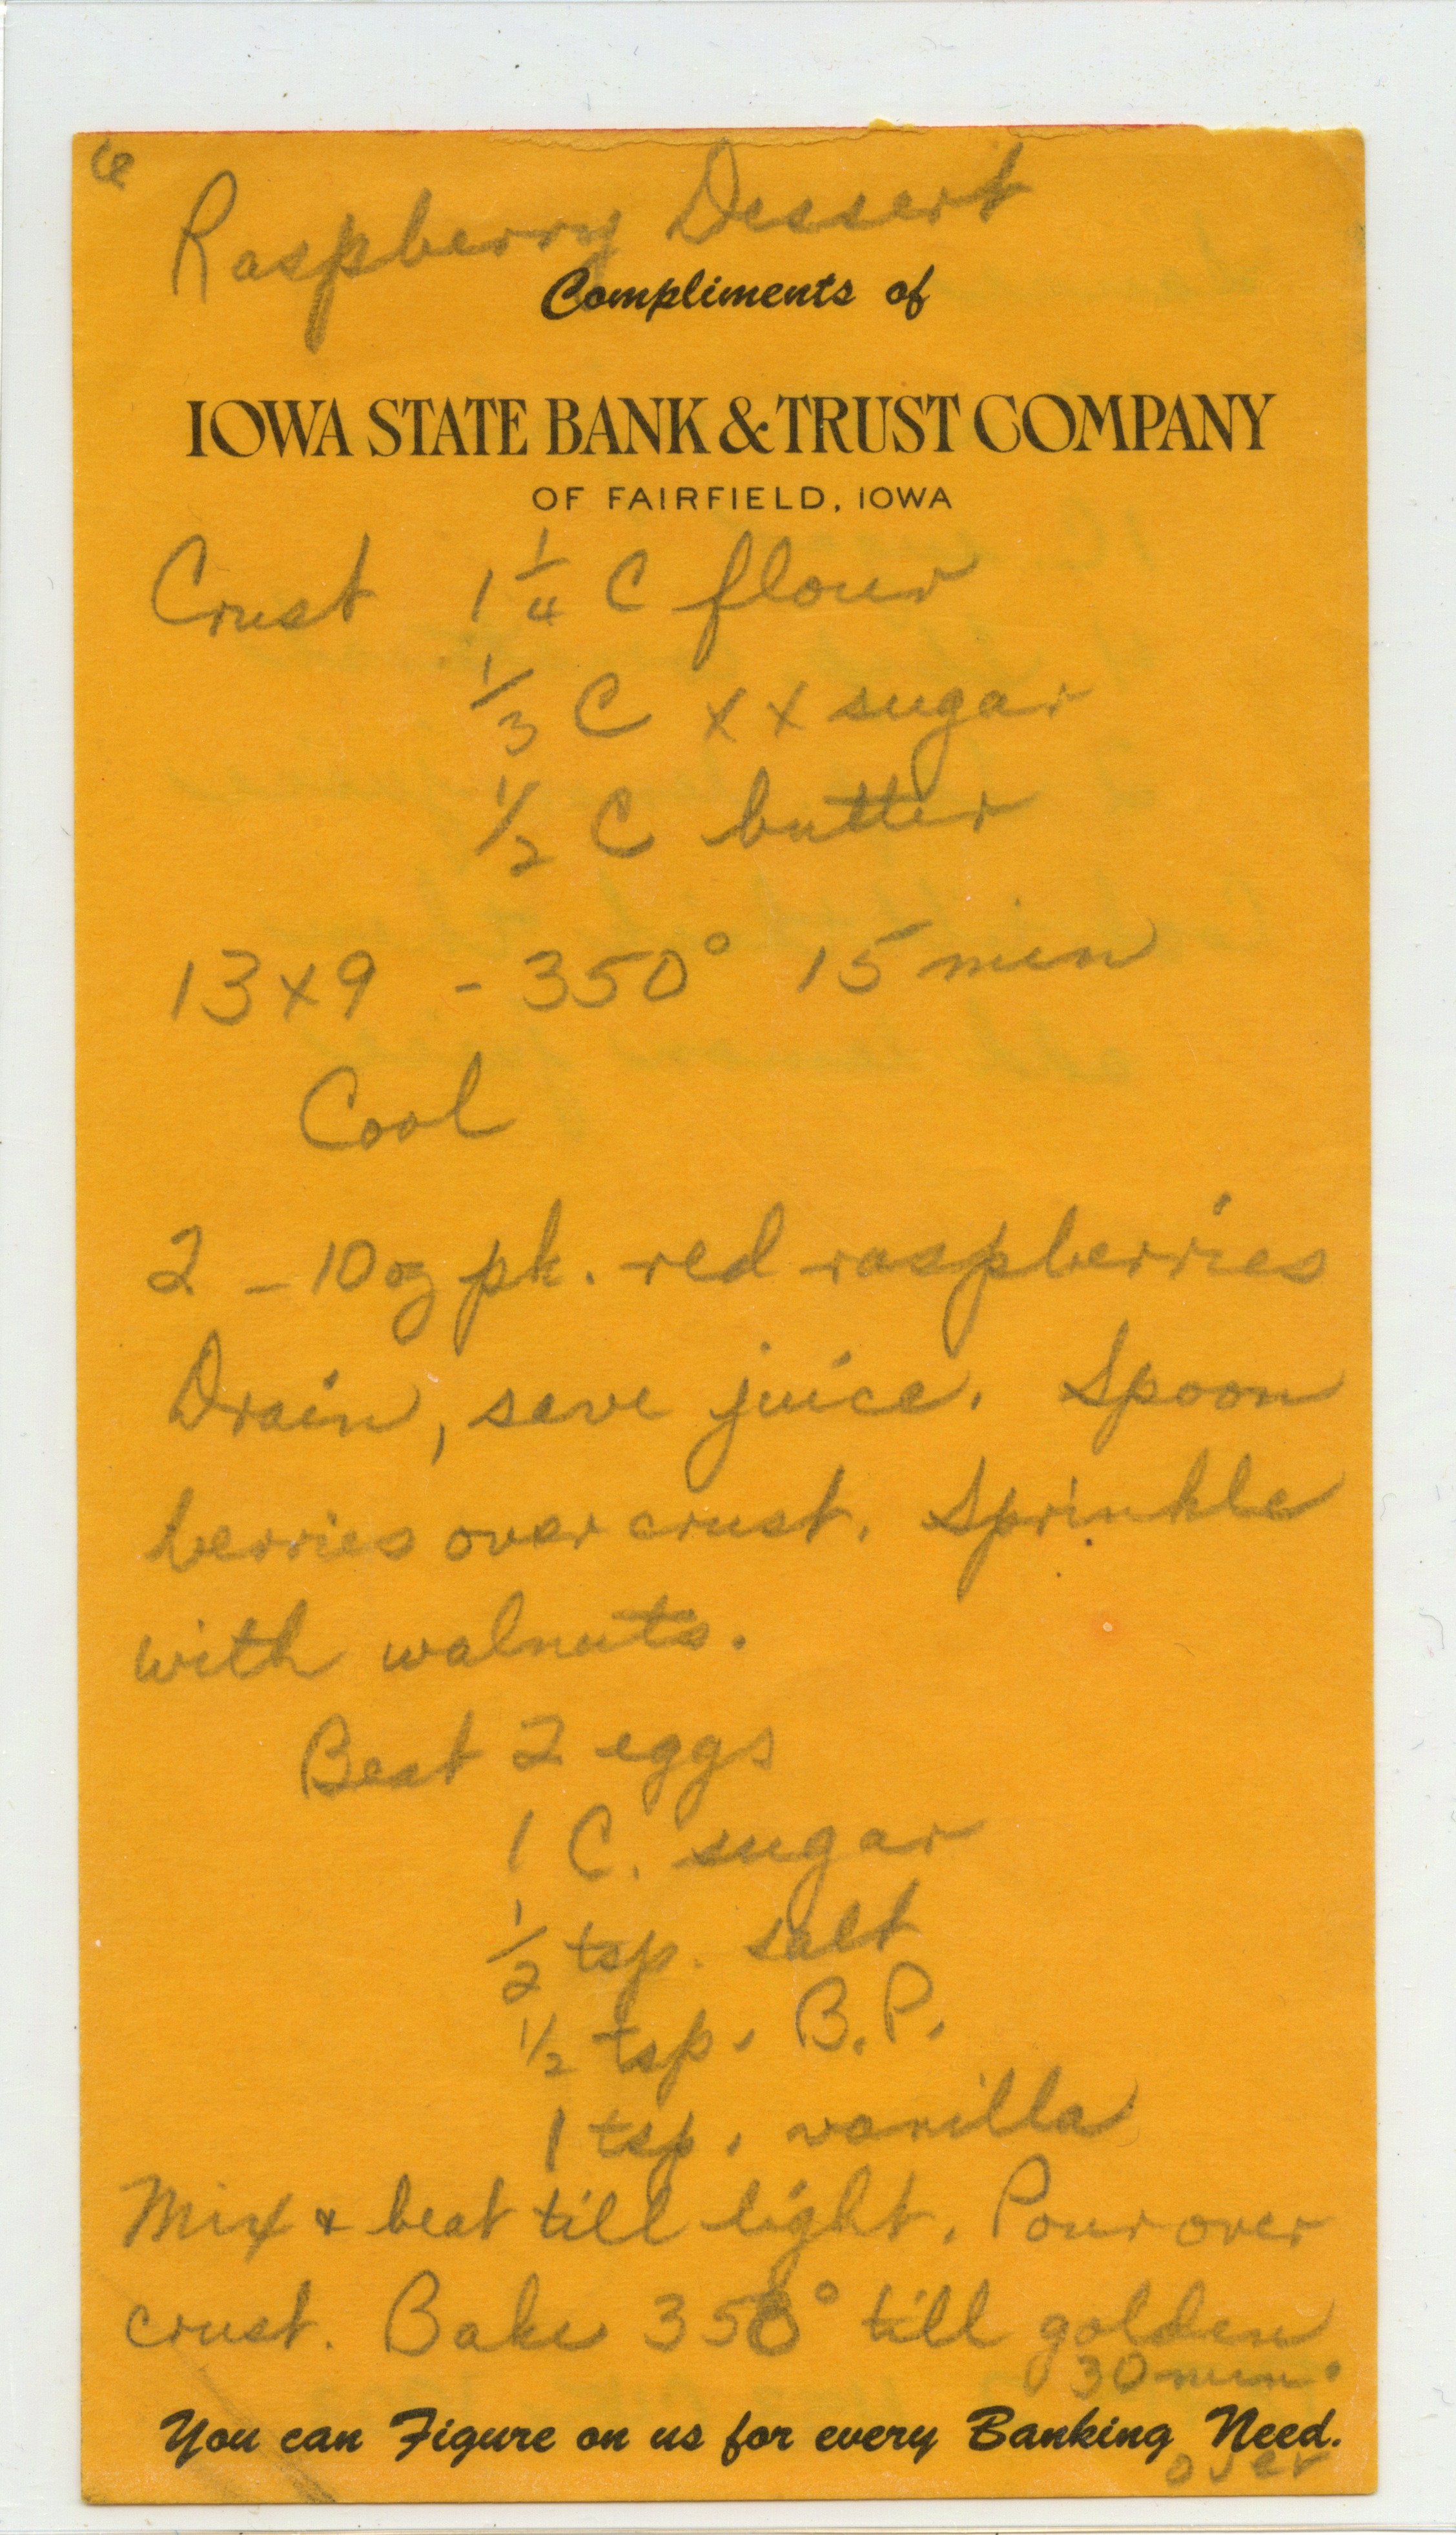 Raspberry Dessert
Compliments of
IOWA STATE BANK & TRUST COMPANY
OF FAIRFIELD, IOWA
Crust 1 1/4 C flour
1/3 C xx sugar
1/2 C butter
13x9 - 350° 15 min
Cool
2 - 10 oz pk. red raspberries
Drain, save juice. Spoon
berries over crust. Sprinkle
with walnuts.
Beat 2 eggs
1 C. sugar
1/2 tsp. salt
1/2 tsp. B.P.
1 tsp. vanilla
Mix & beat till light. Pour over
crust. Bake 350° till golden
30 min.
You can Figure on us for every Banking Need.
over